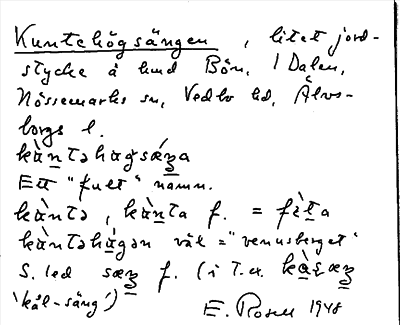 Kuntehögsängen, litet jord-
stycke å hmd Bön, I Dalen,
Nössemarks sn, Vedbo hd, Älvs-
borgs l.
kàntəhøgsǽŋa
Ett "fult" namn.
kàntə, kànta f. = fìta
kàntəhàgən väl = "venusberget"
S. led sæŋ f. (i T.ex. kàsæŋ
'kål-säng') E. Rosen 1948